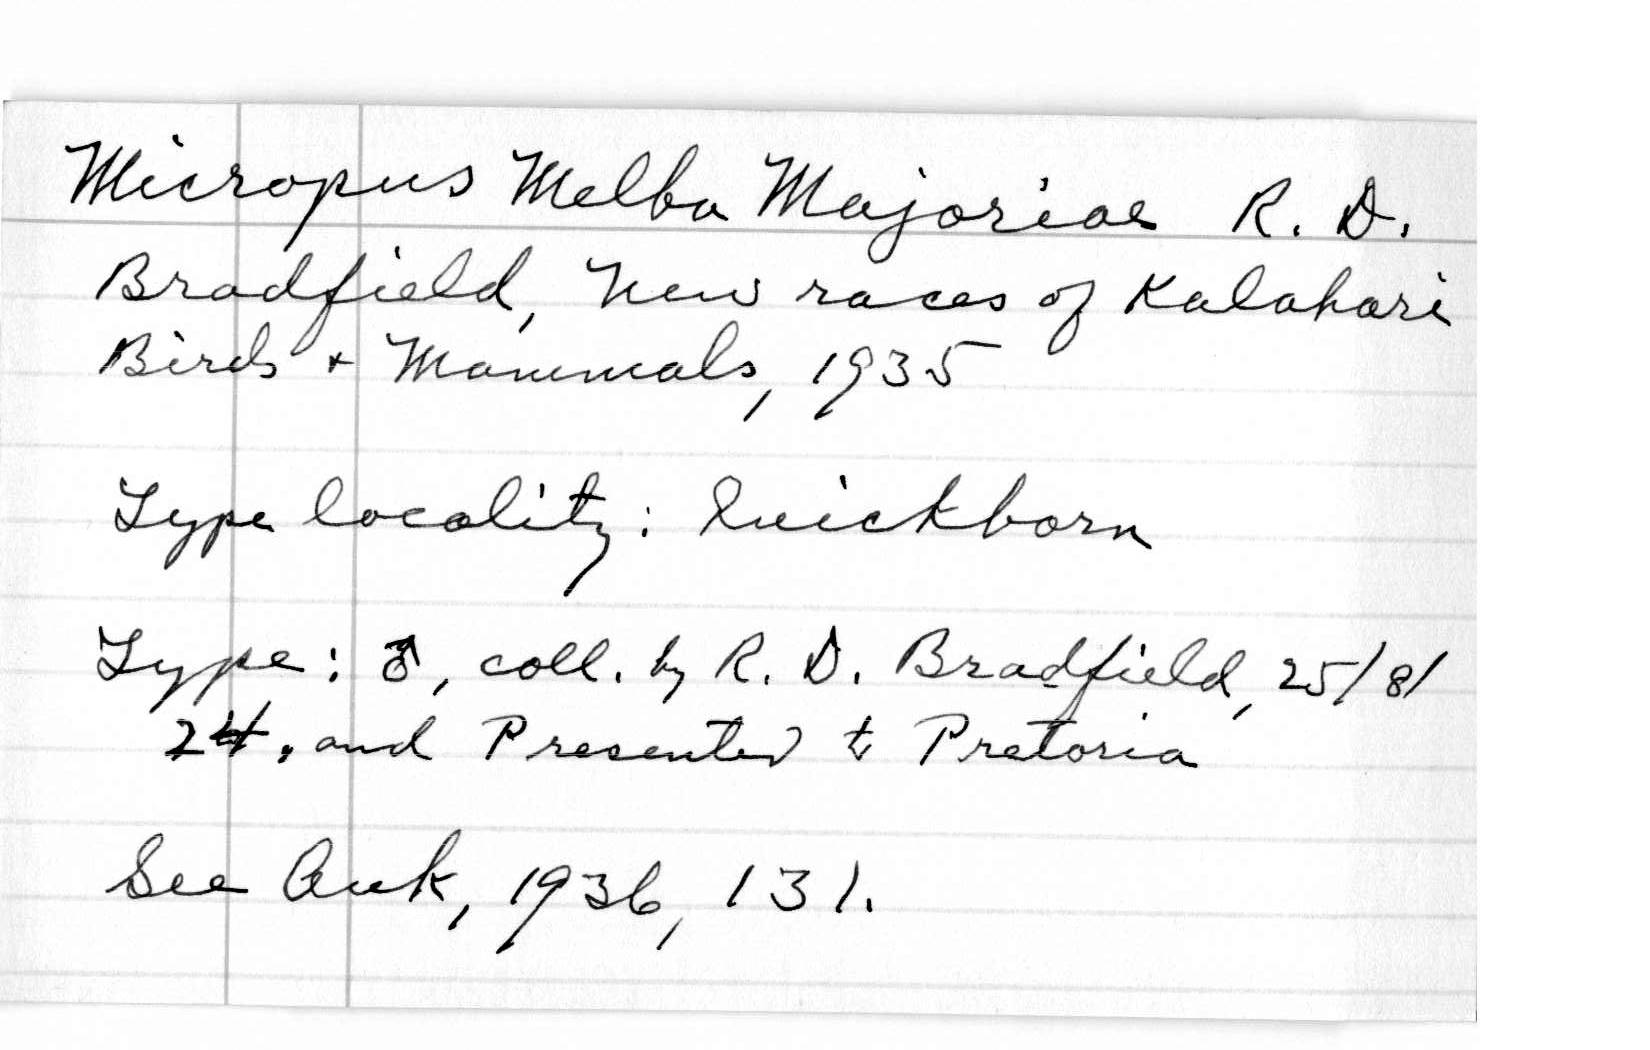 Micropus Melba Majoriae R. D.
Bradfield, New races of Kalahari
Birds + Mammals, 1935
Type locality: Quickborn
Type: ♂, coll. by R. D. Bradfield, 25/8/
24, and Presented to Pretoria
See Auk, 1936, 131.